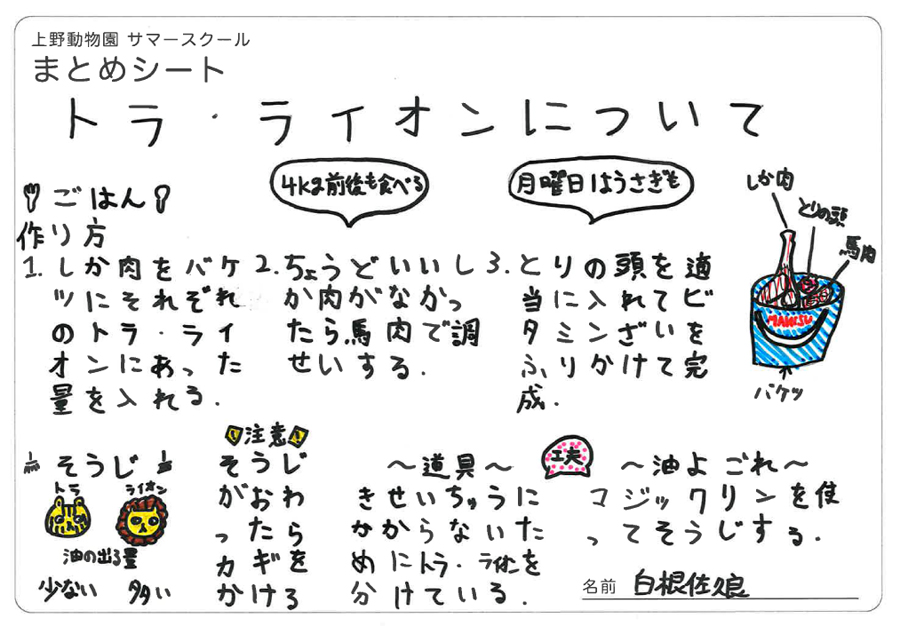 上野動物園 サマースクール
まとめシート
トラ・ライオンについて
ごはん
4kg前後も食べる
月曜日はうさぎも
作り方
1. しか肉をバケ
ツにそれぞれ
のトラ・ライ
オンにあった
量を入れる.
2. ちょうどいいし
か肉がなかっ
たら馬肉で調
せいする.
3. とりの頭を適
当に入れてビ
タミンざいを
ふりかけて完
成.
しか肉
とりの頭
馬肉
MAMISU
バケツ
そうじ
トラ
ライオン
油の出る量
少ない 多い
注意
そうじ
がおわ
ったら
カギを
かける
〜道具〜
きせいちゅうに
かからないた
めにトラ・ライオンを
分けている.
工夫
〜油よごれ〜
マジックリンを使
ってそうじする.
名前 白根佐良